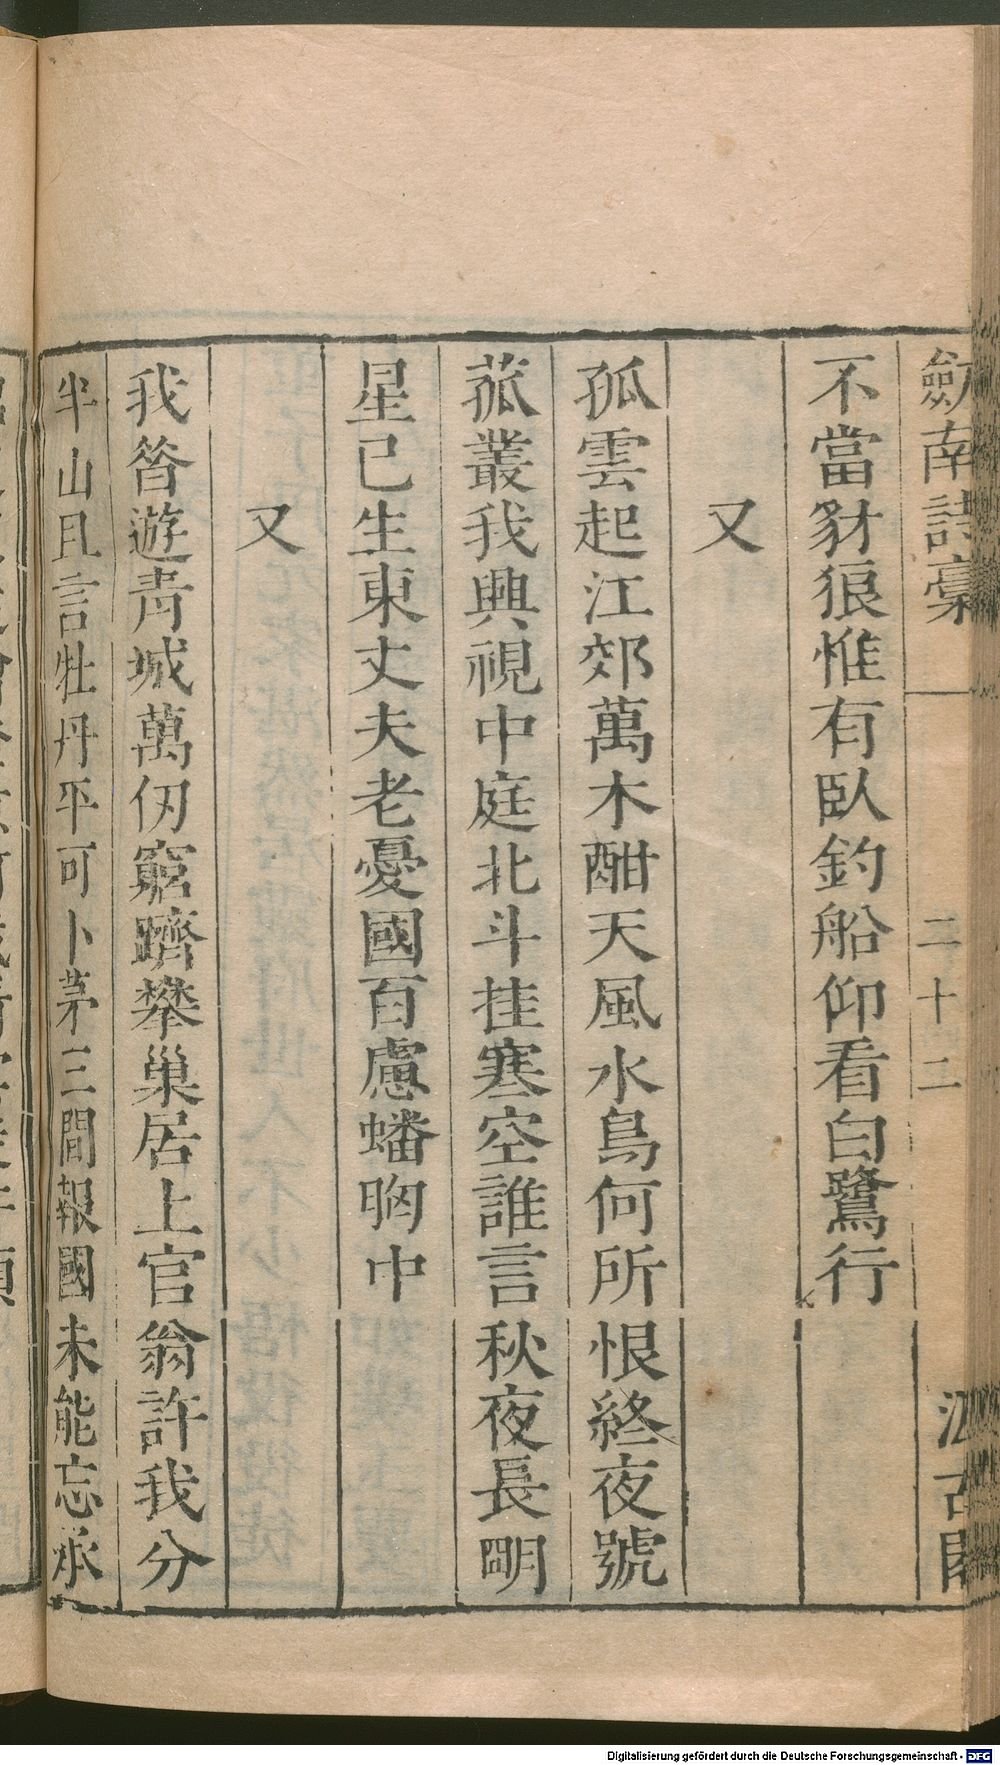 劍南詩稾
二十二
汲古閣
不當豺狼惟有臥釣船仰看白鷺行
又
孤雲起江郊萬木酣天風水鳥何所恨終夜號
菰叢我興視中庭北斗挂寒空誰言秋夜長明
星已生東丈夫老憂國百慮蟠胷中
又
我昝遊青城萬仞窮躋攀巢居上官翁許我分
半山且言牡丹平可卜茅三間報國未能忘承
Digitalisierung gefördert durch die Deutsche Forschungsgemeinschaft - DFG